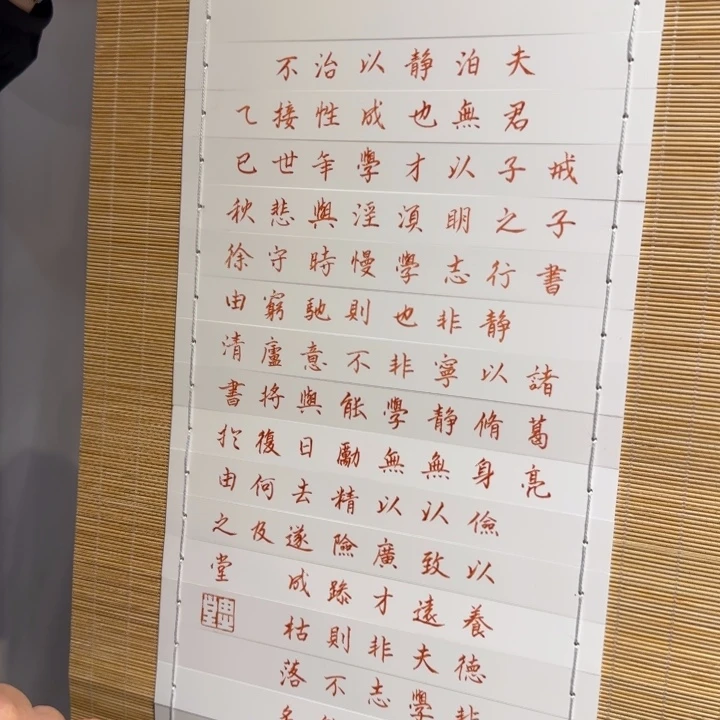 戒子書 諸葛亮
夫君子之行静以脩身儉以養德非
泊無以明志非寧静無以致遠夫學
静也才須學也非學無以廣才非志
以成學淫慢則不能勵精險躁則不
治性年與時馳意與日去遂成枯落多
不接世悲守窮廬將復何及
乙巳秋徐由清書於由之堂